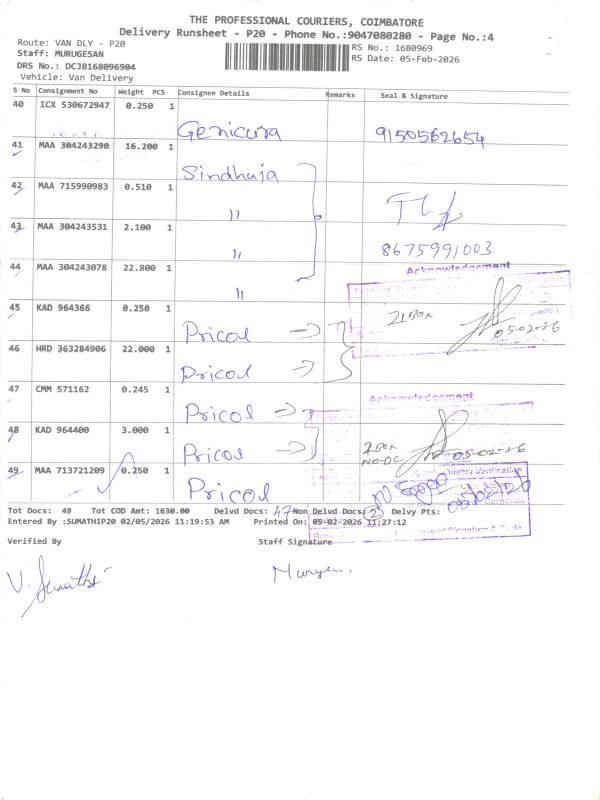 THE PROFESSIONAL COURIERS, COIMBATORE
Delivery Runsheet - P20 - Phone No.:9047080280 - Page No.:4
Route: VAN DLY - P20
Staff: MURUGESAN
RS No.: 1680969
DRS No.: DCJB168096904
RS Date: 05-Feb-2026
Vehicle: Van Delivery
S No Consignment No Weight PCS Consignee Details Remarks Seal & Signature
40 ICX 530672947 0.250 1
Genicura 9150562654
41 MAA 304243290 16.200 1
Sindhuja
42 MAA 715990983 0.510 1
"
43 MAA 304243531 2.100 1
" 8675991003
44 MAA 304243078 22.800 1
Acknowledgement
"
45 KAD 964366 0.250 1
21 Box
Pricol 05-02-26
46 HRD 363284906 22.000 1
Pricol
47 CMM 571162 0.245 1
Acknowledgement
Pricol
48 KAD 964400 3.000 1
Pricol NO-DC 05-02-26
49 MAA 713721209 0.250 1
Quality Verification
Pricol
Corporate
Tot Docs: 49 Tot COD Amt: 1630.00 Delvd Docs: 47 Non Delvd Docs: 2 Delvy Pts:
Entered By :SUMATHIP20 02/05/2026 11:19:53 AM Printed On: 05-02-2026 11:27:12
Verified By Staff Signature
V. Sumathi